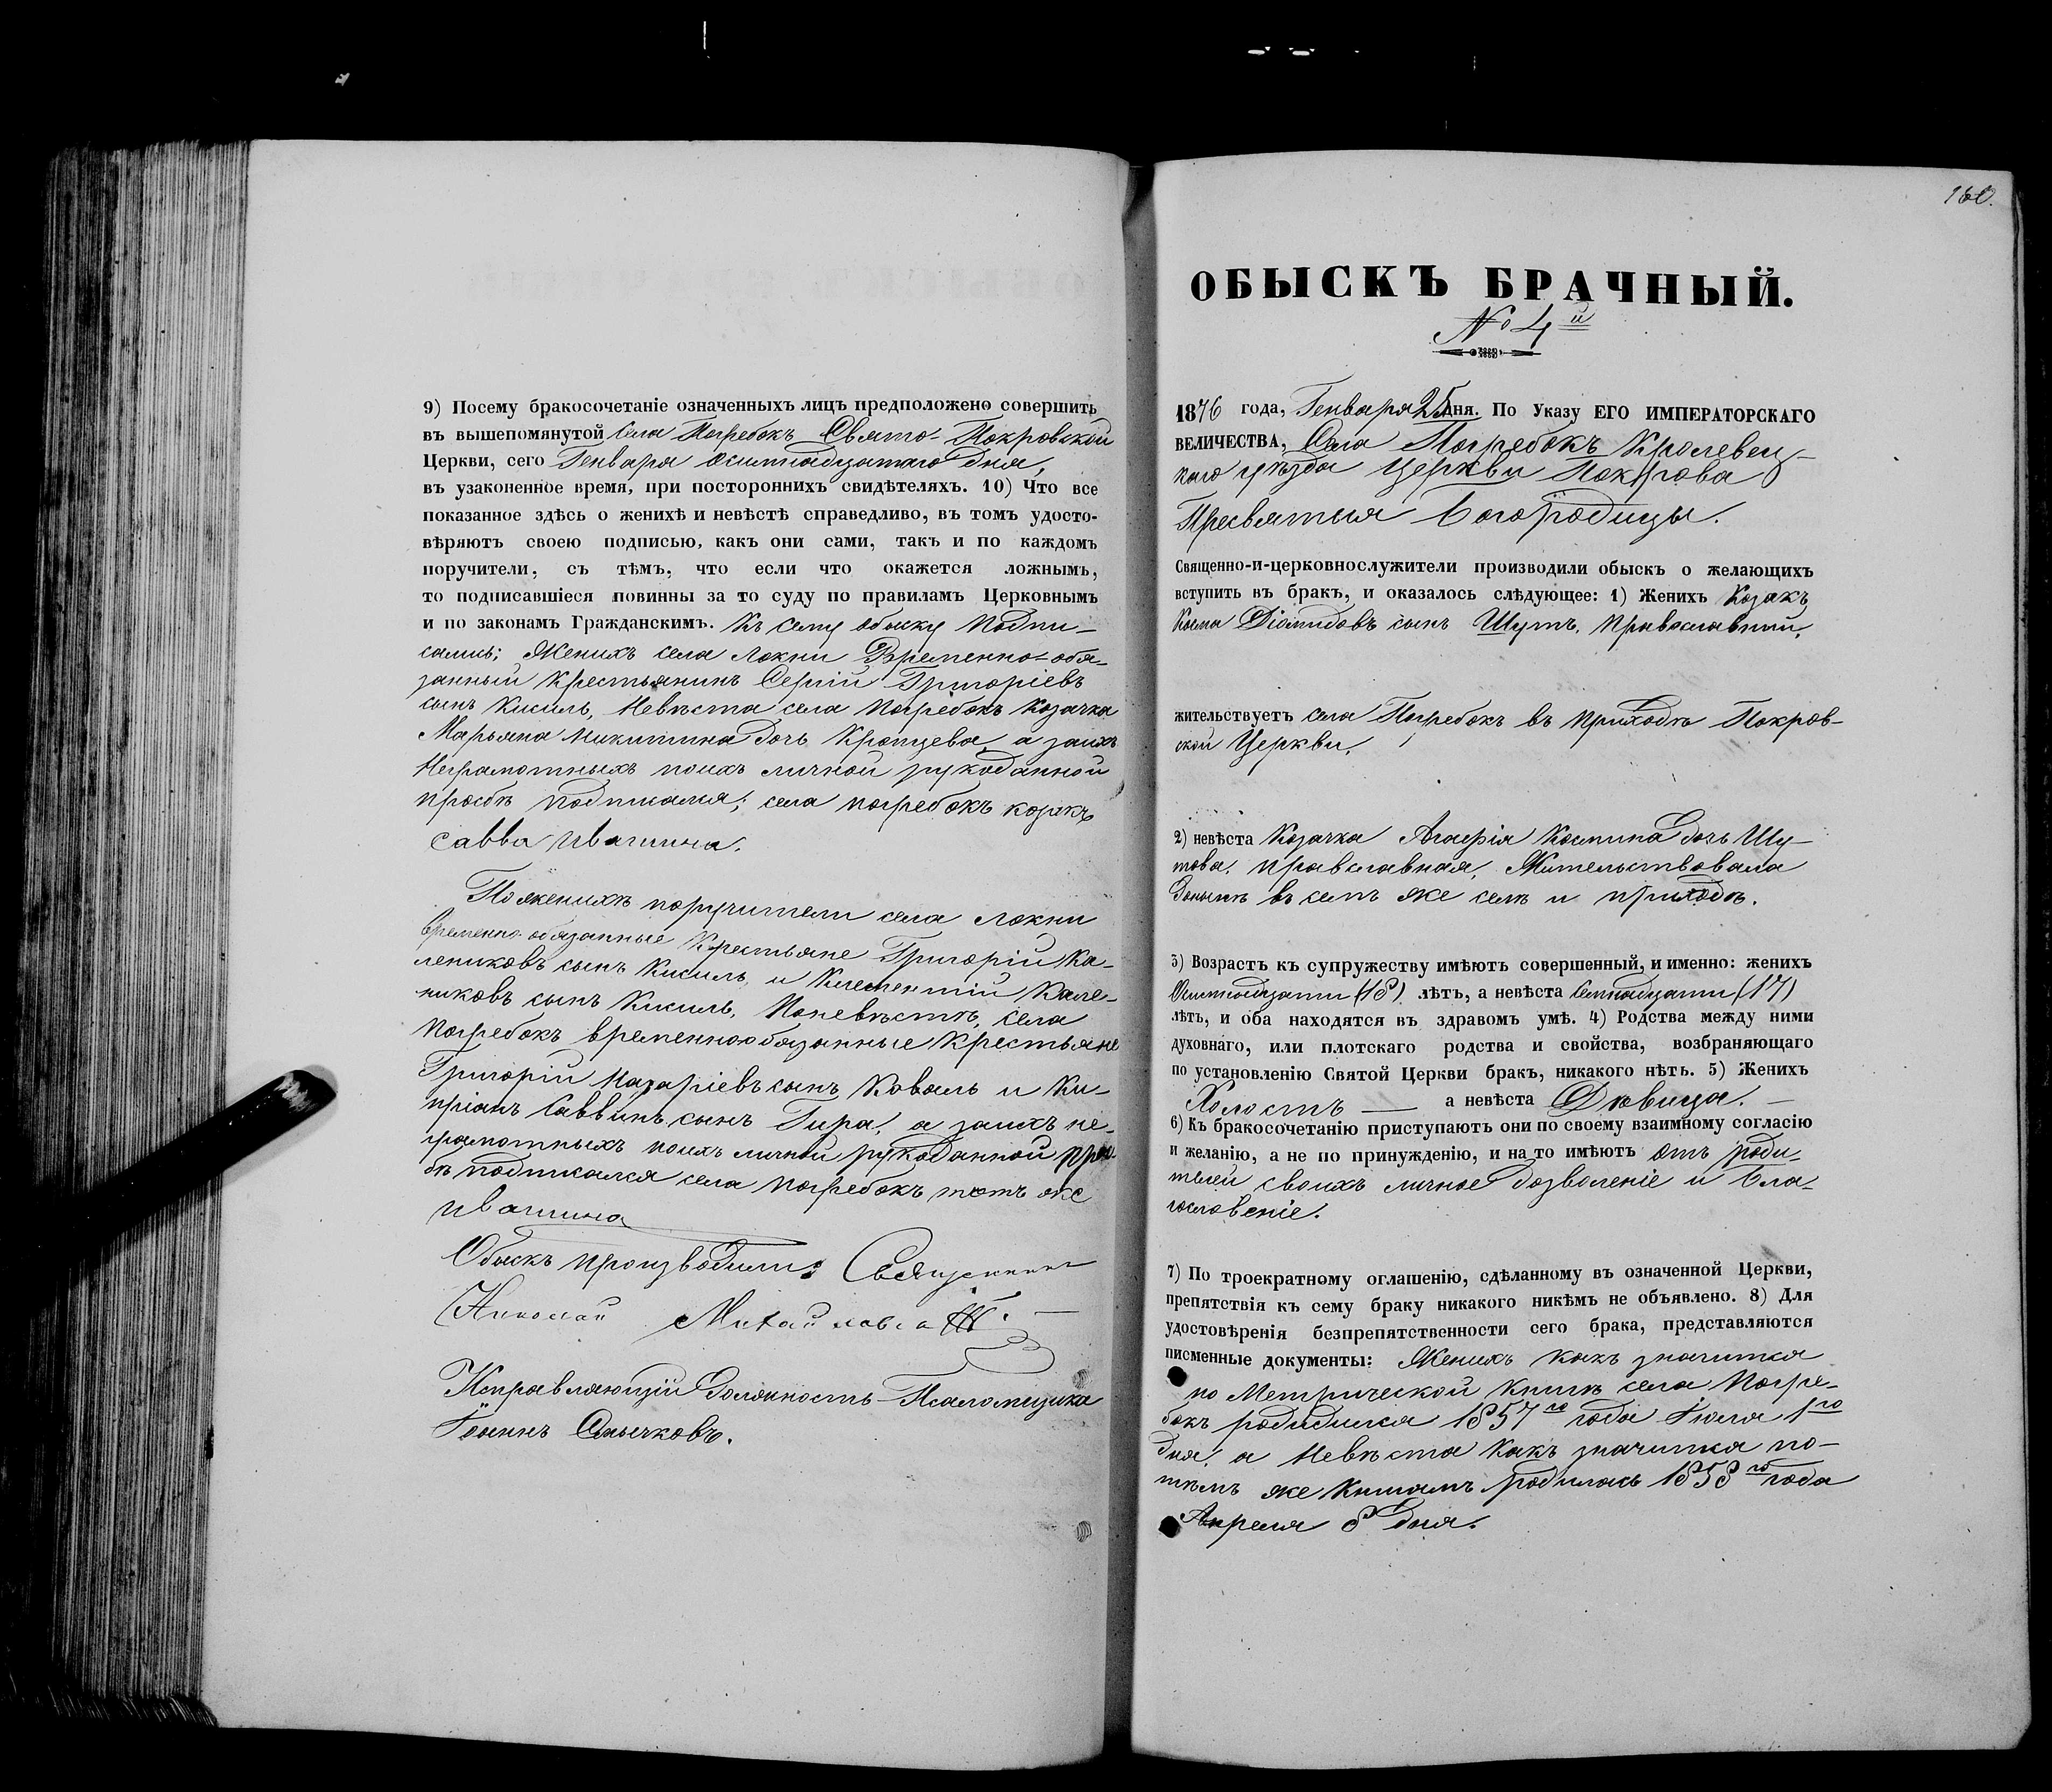 9) Посему бракосочетаніе означенныхъ лицъ предположено совершить
въ вышепомянутой села Погребокъ Свято-Покровской
Церкви, сего Генваря осимнадцатаго дня,
въ узаконенное время, при постороннихъ свидѣтеляхъ. 10) Что все
показанное здѣсь о женихѣ и невѣстѣ справедливо, въ томъ удосто-
вѣряютъ своею подписью, какъ они сами, такъ и по каждомъ
поручители, съ тѣмъ, что если что окажется ложнымъ,
то подписавшіеся повинны за то суду по правиламъ Церковнымъ
и по законамъ Гражданскимъ. Къ сему обыску Подпи-
сались: Женихъ села Локни Временно-обя-
занный Крестьянинъ Сергій Григоріевъ
сынъ Кисиль, Невѣста села Погребокъ Козачка
Марьяна Никитина дочь, а заихъ
Неграмотныхъ поихъ личной рукоданной
просбѣ подписался; села погребокъ козакъ
Савва Ивашина.
По женихѣ поручители села Локни
временно-обязанные Крестьяне Григорій Ка-
лениковъ сынъ Кисиль, и Климентій Кале-
никовъ сынъ Кисиль, Поневѣстѣ, села
Погребокъ временнообязанные Крестьяне
Григорій Назаріевъ сынъ Коваль и Ки-
пріанъ Саввинъ сынъ Гира, а заихъ не-
грамотныхъ поихъ личной рукоданной прос-
бѣ подписался села Погребокъ тотъ же
Ивашина
Обыскъ производили: Священникъ
Николай
Исправляющій Должность Псаломщика
Іоаннъ

160.
ОБЫСКЪ БРАЧНЫЙ.
№ 4й
1876 года, Генваря 25 дня. По Указу ЕГО ИМПЕРАТОРСКАГО
ВЕЛИЧЕСТВА, Села Погребокъ Кролевец-
каго уѣзда Церкви Покрова
Пресвятыя Богородицы.
Священно-и-церковнослужители производили обыскъ о желающихъ
вступить въ бракъ, и оказалось слѣдующее: 1) Женихъ Козакъ
Косма Діомидовъ сынъ Шутъ, Православный,
жительствуетъ села Погребокъ въ приходѣ Покров-
ской Церкви,
2) невѣста Козачка Агафія Космина дочь Шу-
това, православная, Жительствовала
донынѣ въ семъ же селѣ и приходѣ.
3) Возрастъ къ супружеству имѣютъ совершенный, и именно: женихъ
Осимнадцати (18) лѣтъ, а невѣста семнадцати (17)
лѣтъ, и оба находятся въ здравомъ умѣ. 4) Родства между ними
духовнаго, или плотскаго родства и свойства, возбраняющаго
по установленію Святой Церкви бракъ, никакого нѣтъ. 5) Женихъ
Холостъ — а невѣста Дѣвица. —
6) Къ бракосочетанію приступаютъ они по своему взаимному согласію
и желанію, а не по принужденію, и на то имѣютъ отъ роди-
телей своихъ личное дозволеніе и бла-
гословеніе.
7) По троекратному оглашенію, сдѣланному въ означенной Церкви,
препятствія къ сему браку никакого никѣмъ не объявлено. 8) Для
удостовѣренія безпрепятственности сего брака, представляются
писменные документы: Женихъ какъ значится
по Метрической Книгѣ села Погре-
бокъ родидился 1857го года Іюля 1го
дня, а Невѣста какъ значится по-
тѣмъ же Книгамъ родилась 1858го года
Апреля 8 дня.